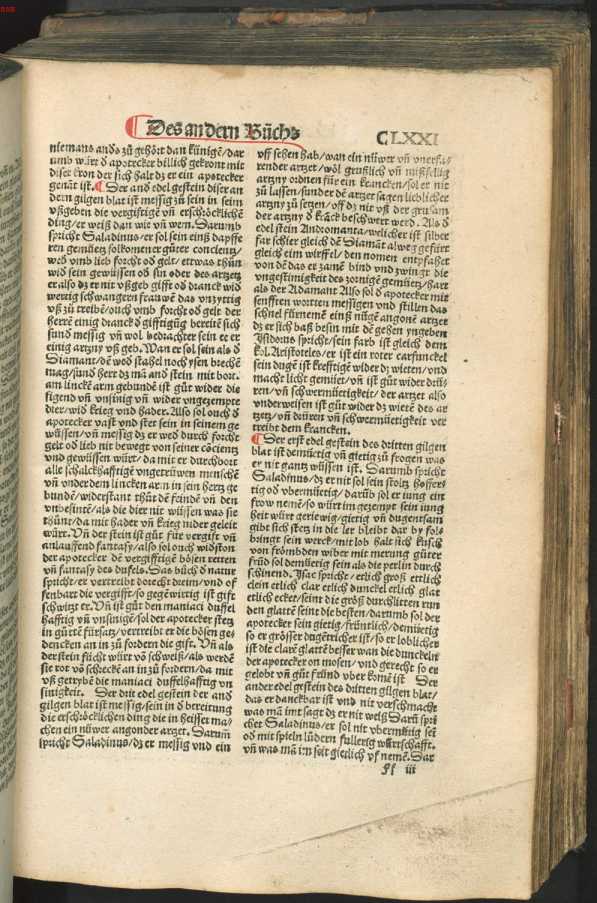 Des andern Bůchs
CLXXI
niemans ands zů gehört dan künigē/dar
umb würt d apotecker billich gekront mit
diser kron der sich halt dz er ein apotecker
genāt ist. Der and edel gestein diser an
dern gilgen blat ist messig zů sein in seim
vßgeben die vergiftigē vn̄ erschröcklichē
ding/er weiß dan wie vn̄ wem. Darumb
spricht Saladinus/er sol sein einß dapffe
ren gemüetz solkomener gůter concientz/
wed vmb lieb forcht od gelt/ettwas thůn
wid sein gewüssen ob sin oder des artzetz
er also dz er nit vßgeb gifft od dranck wid
wertig schwangern frauwē das vnzyttig
vß zů treibē/ouch vmb forcht od gelt der
herrē einig dranck d gifftigūg bereitē sich
sund messig vn̄ wol bedrachter sein ee er
einig artzny vß geb. Wan er sol sein als d
Diamant/dē wed stahel noch ysen brechē
mag/sund herr dz mā and stein mit bort.
am linckē arm gebundē ist gůt wider die
figend vn̄ vnsinig vn̄ wider vngezempte
dier/wid krieg vnd hader. Also sol ouch d
apotecker vast vnd ster sein in seinem ge
wüssen/vn̄ messig dz er wed durch forcht
gelt od lieb nit bewegt von seiner cōcientz
vnd gewüssen würt/da mit er durchbort
alle schalckhafftige vngetrüwen menschē
vn̄ vnder dem lincken arm in sein hertz ge
bundē/widerstant thůt dē feindē vn̄ den
vnbesintē/als die dier nit wüssen was sie
thůnt/da mit hader vn̄ krieg nider geleit
würt. Vn̄ der stein ist gůt für vergift vn̄
anlauffend fantasy/also sol ouch widston
der apotecker dē vergifftigē bösen retten
vn̄ fantasy des dufels. Das bůch d natur
spricht/er vertreibt dorecht dreim/vnd of
fenbart die vergifft/so gegēwirtig ist gift
schwitzt er. Vn̄ ist gůt den maniaci duffel
hafftig vn̄ vnsinigē/sol der apotecker stetz
in gůtē fürsatz/vertreibt er die bösen ge-
dencken an in zů fordern die gift. Vn̄ als
der stein fücht würt vō schweiß/als werdē
sie rot vō schreckē an in zů fordern/da mit
vß getrybē die maniaci duffelhafftig vn
sinigkeit. Der drit edel gestein der and
gilgen blat ist messig/sein in d bereitung
die erschröcklichen ding die in heisset ma-
chen ein nüwer angonder artzet. Darum̄
spricht Saladinus/dz er messig vnd ein
vff sehen hab/wan ein nüwer vn̄ vnerfa-
render artzet/wöl grusslich vn̄ mißfellig
artzny ordnen für ein krancken/sol er nit
zů lassen/sunder dē artzet sagen lieblicher
artzny zů setzen/vff dz nit vß der grusam
der artzny d krāck beschwert werd. Als d
edel stein Andromanta/welicher ist silber
far schier gleich dē Diamāt alweg gefürt
gleich eim wirffel/den nomen entpfahet
von dē das er zamē bind vnd zwingt die
vngestimigkeit des zornigē gemüetz/hart
als der Adamant Also sol d apotecker mit
senfften wortten messigen vnd stillen das
schnel fürnemē einß nüwē angonē artzet
dz er sich baß besin mit dē gehen yngeben
Isidorus spricht/sein farb ist gleich dem
kol. Aristoteles/er ist ein roter carfunckel
sein dugēt ist kreefftigē wider dz wieten/vnd
macht licht gemüet/vn̄ ist gůt wider drü-
ren/vn̄ schwermüetigkeit/der artzet also
vnderweisen ist gůt wider dz wietē des ar
tzetz/vn̄ drüren vn̄ schwermüetigkeit ver
treibt dem krancken.
Der erst edel gestein des dritten gilgen
blat ist demüetig vn̄ gietig zů frogen was
er nit gantz wüssen ist. Darumb spricht
Saladinus/dz er nit sol sein stoltz hoffer-
tig od vbermüetig/darūb sol er iung ein
frow nemē/so würt im gezempt sein iung
heit würt geriewig/gietig vn̄ dugentsam
gibt sich stetz in die ler bleibt dar by fols-
bringt sein werck/mit lob halt sich küsch
von frömbden wiber mit merung gůter
frūd sol demüetig sein als die perlin durch
schinend. Isac spricht/etlich groß ettlich
clein etlich clar etlich dunckel etlich glat
etlich ecket/seint die größ durchlitten run
den glattē seint die besten/darumb sol der
apotecker sein gietig/früntlich/demüetig
so er grösser dugētricher ist/so er loblicher
ist die clarē glattē besser wan die dunckeln
der apotecker on mosen/vnd gerecht so er
gelobt vn̄ gůt fründ vber komē ist Der
ander edel gestein des dritten gilgen blat/
das er danckbar ist vnd nit verschmacht
was mā imt sagt dz er nit weiß Darū spri
chet Saladinus/er sol nit vbermütig sei
od mit spieln lůdern fullerig würtschafft.
vn̄ was mā im seit gietlich vf nemē. Dar
ff iii